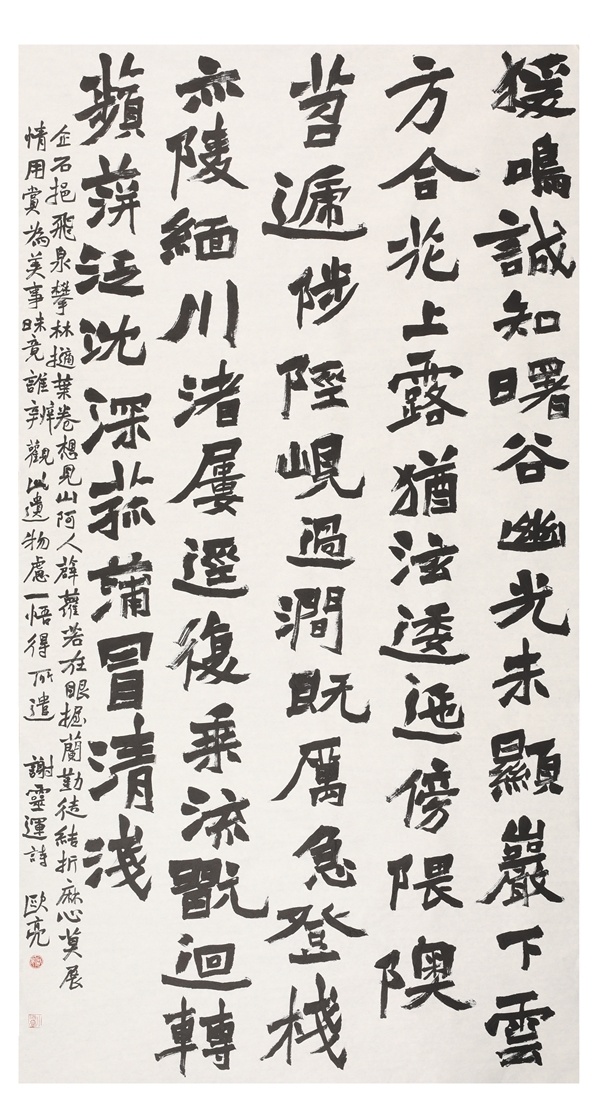 猨鳴誠知曙谷幽光未顯巖下雲
方合花上露猶泫逶迤傍隈隩
苕遞陟陘峴過澗既厲急登棧
亦陵緬川渚屢逕復乘流翫迴轉
蘋萍泛沈深菰蒲冒清淺
企石挹飛泉攀林擿葉卷想見山阿人薜蘿若在眼握蘭勤徒結折麻心莫展
情用賞為美事昧竟誰辨觀此遺物慮一悟得所遣 謝靈運詩 歐亮